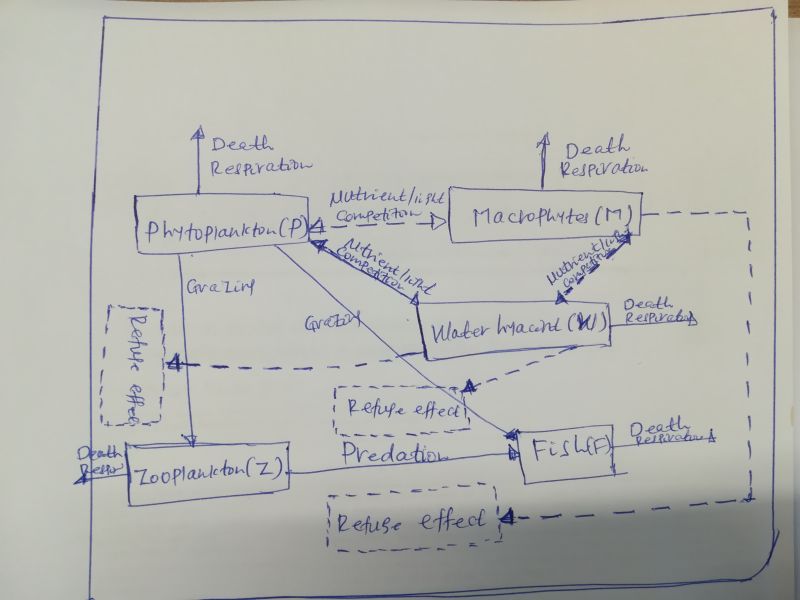 Death
Respiration
Death
Respiration
Phytoplankton(P)
Nutrient/light
Competition
Macrophytes(M)
Nutrient/light
Competition
Nutrient/light
Competition
Grazing
Grazing
Water hyacint(W)
Death
Respiration
Refuse effect
Refuse effect
Death
Respir
Zooplankton(Z)
Predation
Fish(F)
Death
Respiration
Refuse effect